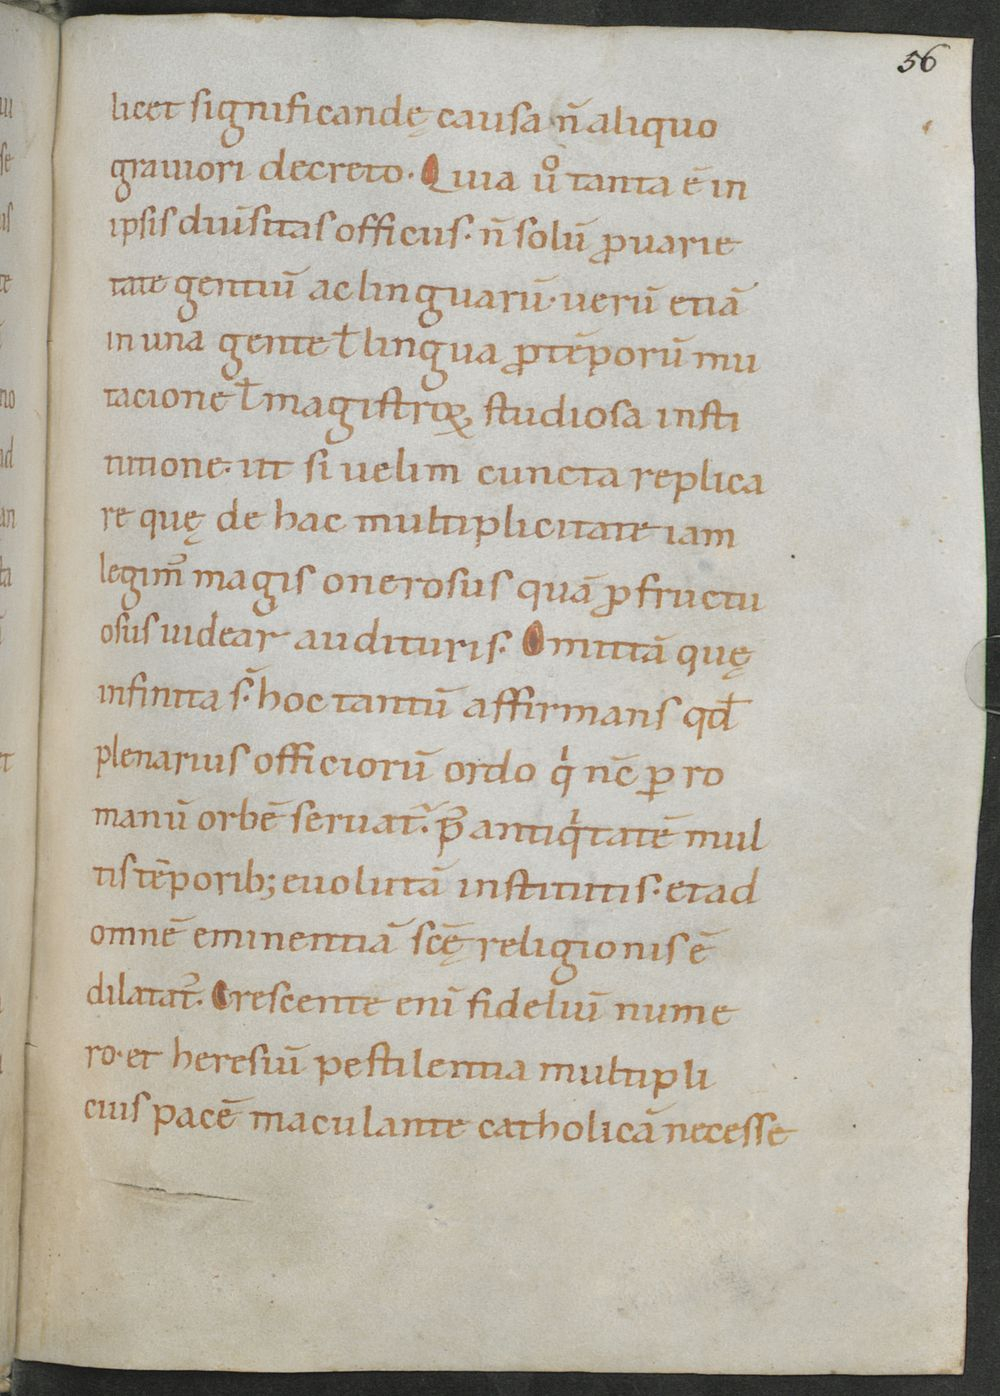 56
licet significandę causa n̄ aliquo
grauiori decreto. Quia ůo tanta ē in
ipsis diu̅sitas officiis. n̄ solū ꝓ uarie
tate gentiū ac linguarū. uerū etiā
in una gente ƚ lingua ꝓ tēporū mu
tacione ƚ magistroꝝ studiosa insti
tutione. ut si uelim cuncta replica
re quę de hac multiplicitate iam
legim̄ magis onerosus quā ꝓfructu
osus uidear audituris. Omittā quę
infinita s̄. hoc tantū affirmans qd̄
plenarius officiorū ordo qͥ nc̄ ꝑ ro
manū orbē seruat᷒. p̄ antiqͥtatē mul
tis tēporib; euolutā institutis. et ad
omnē eminentiā scę̄ religionis ē
dilatat᷒. Crescente enī fideliū nume
ro. et heresiū pestilentia multipli
cius pacē maculante catholicā necesse